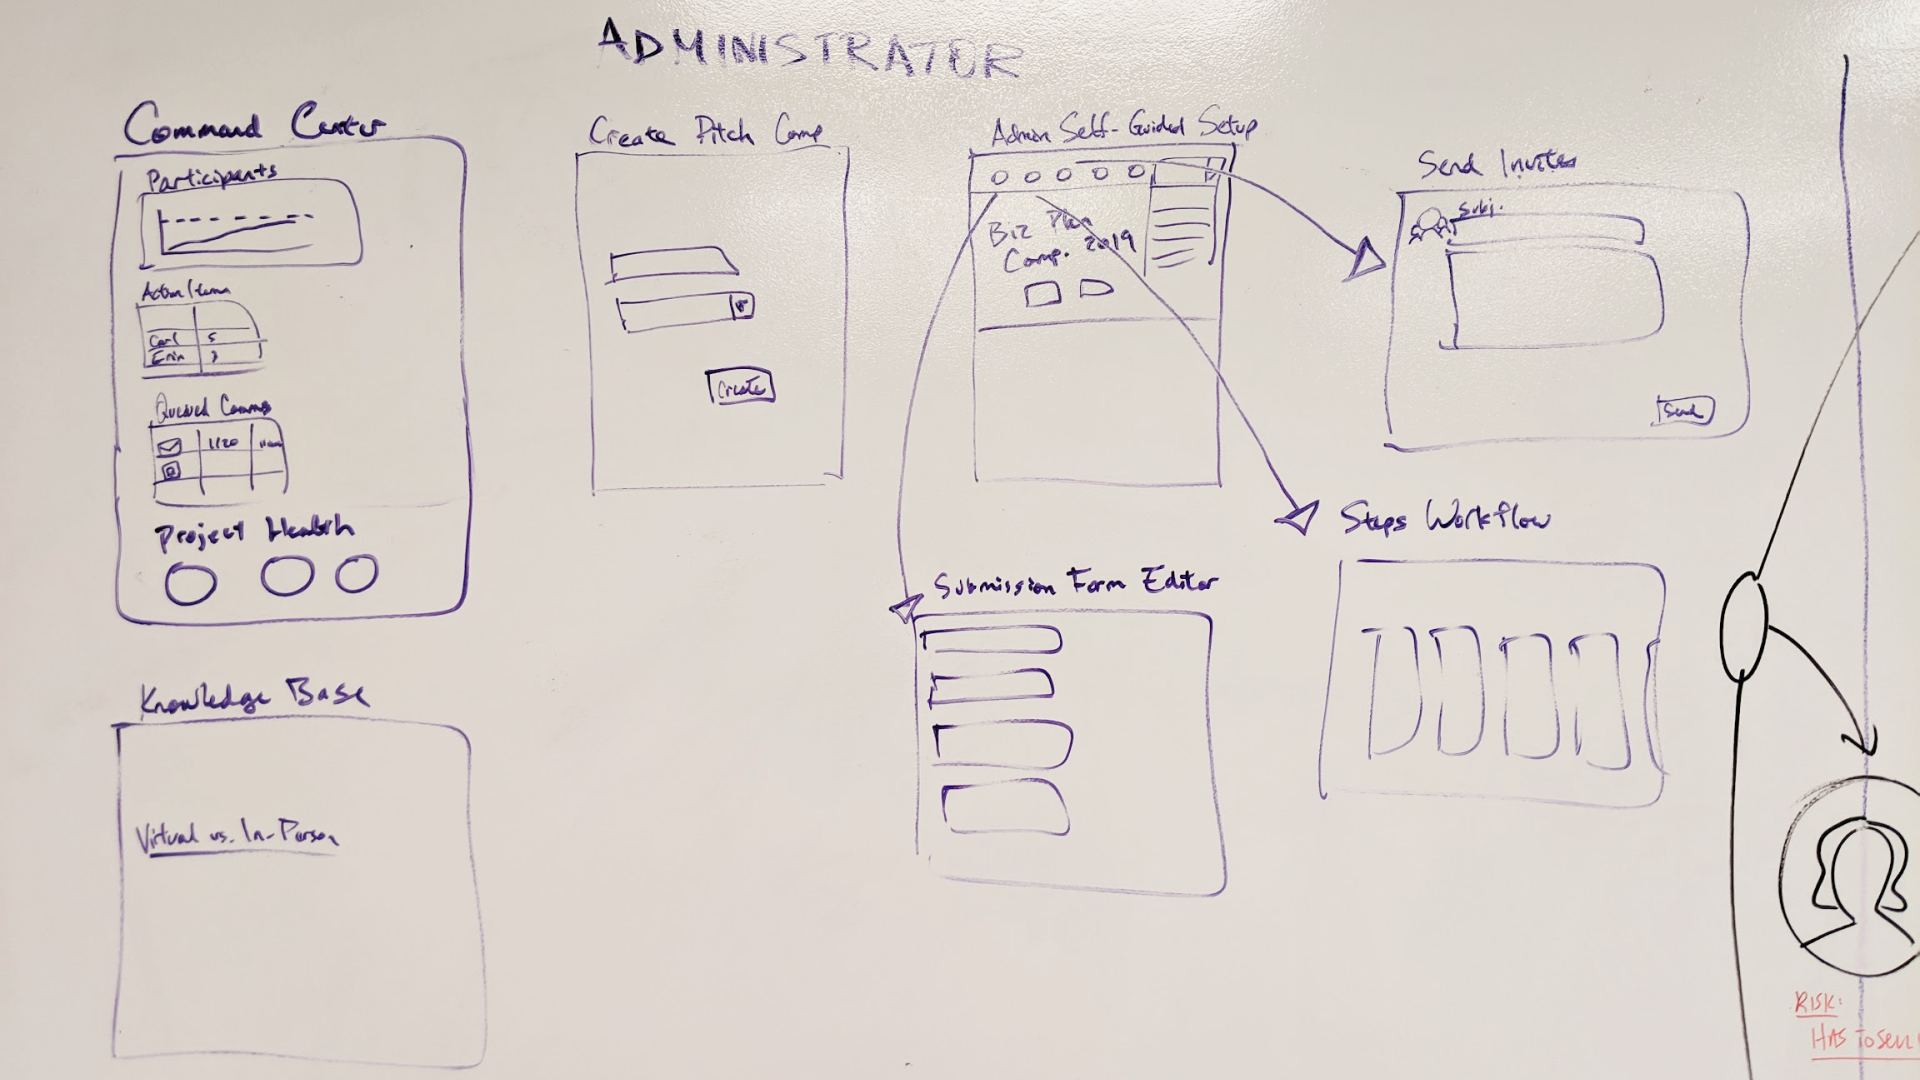 ADMINISTRATOR
Command Center
Participants
Action Items
Carl 5
Erin 3
Queued Comms
1/20
Project Health
Knowledge Base
Virtual vs. In-Person
Create Pitch Comp
Create
Admin Self-Guided Setup
Biz Plan
Comp. 2019
Send Invites
Subj.
Send
Submission Form Editor
Steps Workflow
RISK:
HAS TO